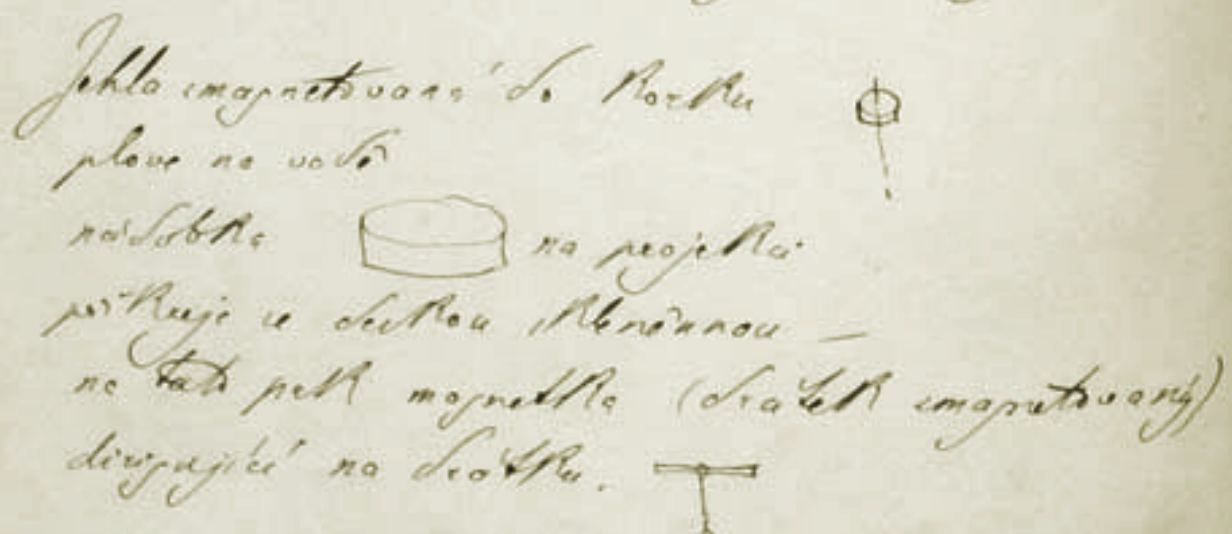 Jehla zmagnetovaná do korku
plove na vodě
nádobka na projekci
přikryje se deskou skleněnnou —
na tuto pak magnetka (drátek zmagnetovaný)
dirigující na drátku.